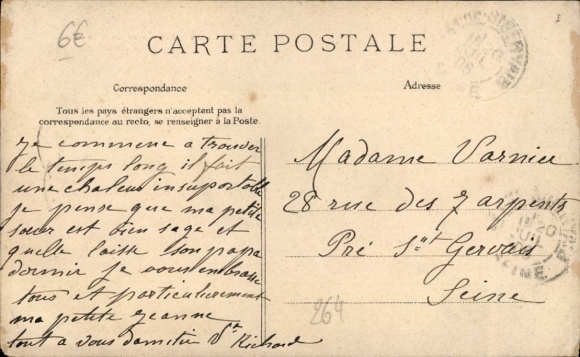 6€
CARTE POSTALE
Correspondance
Adresse
Tous les pays étrangers n'acceptent pas la
correspondance au recto, se renseigner à la Poste.
je commence a trouver
le temps long il fait
une chaleur insuportable
je pense que ma petite
sœur est bien sage et
quelle laisse son papa
dormir je vous embrasse
tous et particulierement
ma petite jeanne
tout a vous damitié
Richard
Madame Varnier
28 rue des 7 arpents
Pré St Gervais
Seine
264